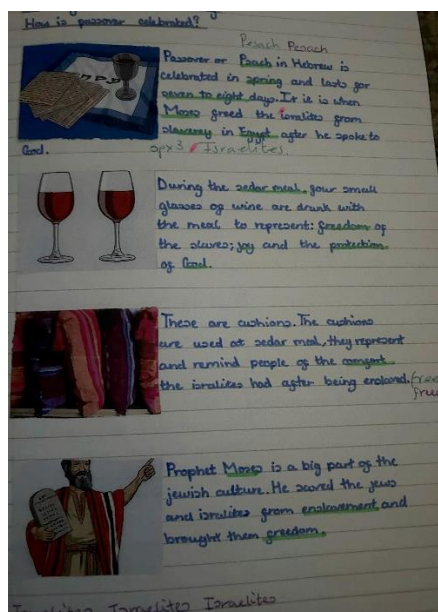 How is passover celebrated?
Pesach Pesach
Passover or Psach in Hebrew is
celebrated in spring and lasts for
seven to eight days. It is is when
Moses freed the isralites from
slaverey in Egypt after he spoke to
God.
spx3 Israelites.
During the sedar meal, four small
glasses of wine are drunk with
the meal to represent: freedom of
the slaves; joy and the protection
of God.
These are cushions. The cushions
are used at sedar meal, they represent
and remind people of the comfort
the isralites had after being enslaved.
Prophet Moses is a big part of the
jewish culture. He saved the jews
and isralites from enslavement and
brought them freedom.
Israelites Israelites Israelites